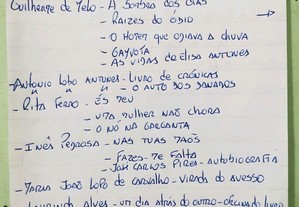 Guilherme de Melo - A Sombra dos Dias
- Raízes do Ódio
- O Homem que odiava a chuva
- Gayvota
- As vidas de Elisa Antunes
- António Lobo Antunes - Livro de Crónicas
" " " - O Auto dos Danados
- Rita Ferro - És Meu
- Uma mulher não chora
- O nó na garganta
- Inês Pedrosa - Nas tuas mãos
- Fazes-me falta
- José Carlos Pires - Autobiografia
- Maria João Lopo de Carvalho - Virada do avesso
- Laurinda Alves - Um dia atrás do outro - oficina do livro